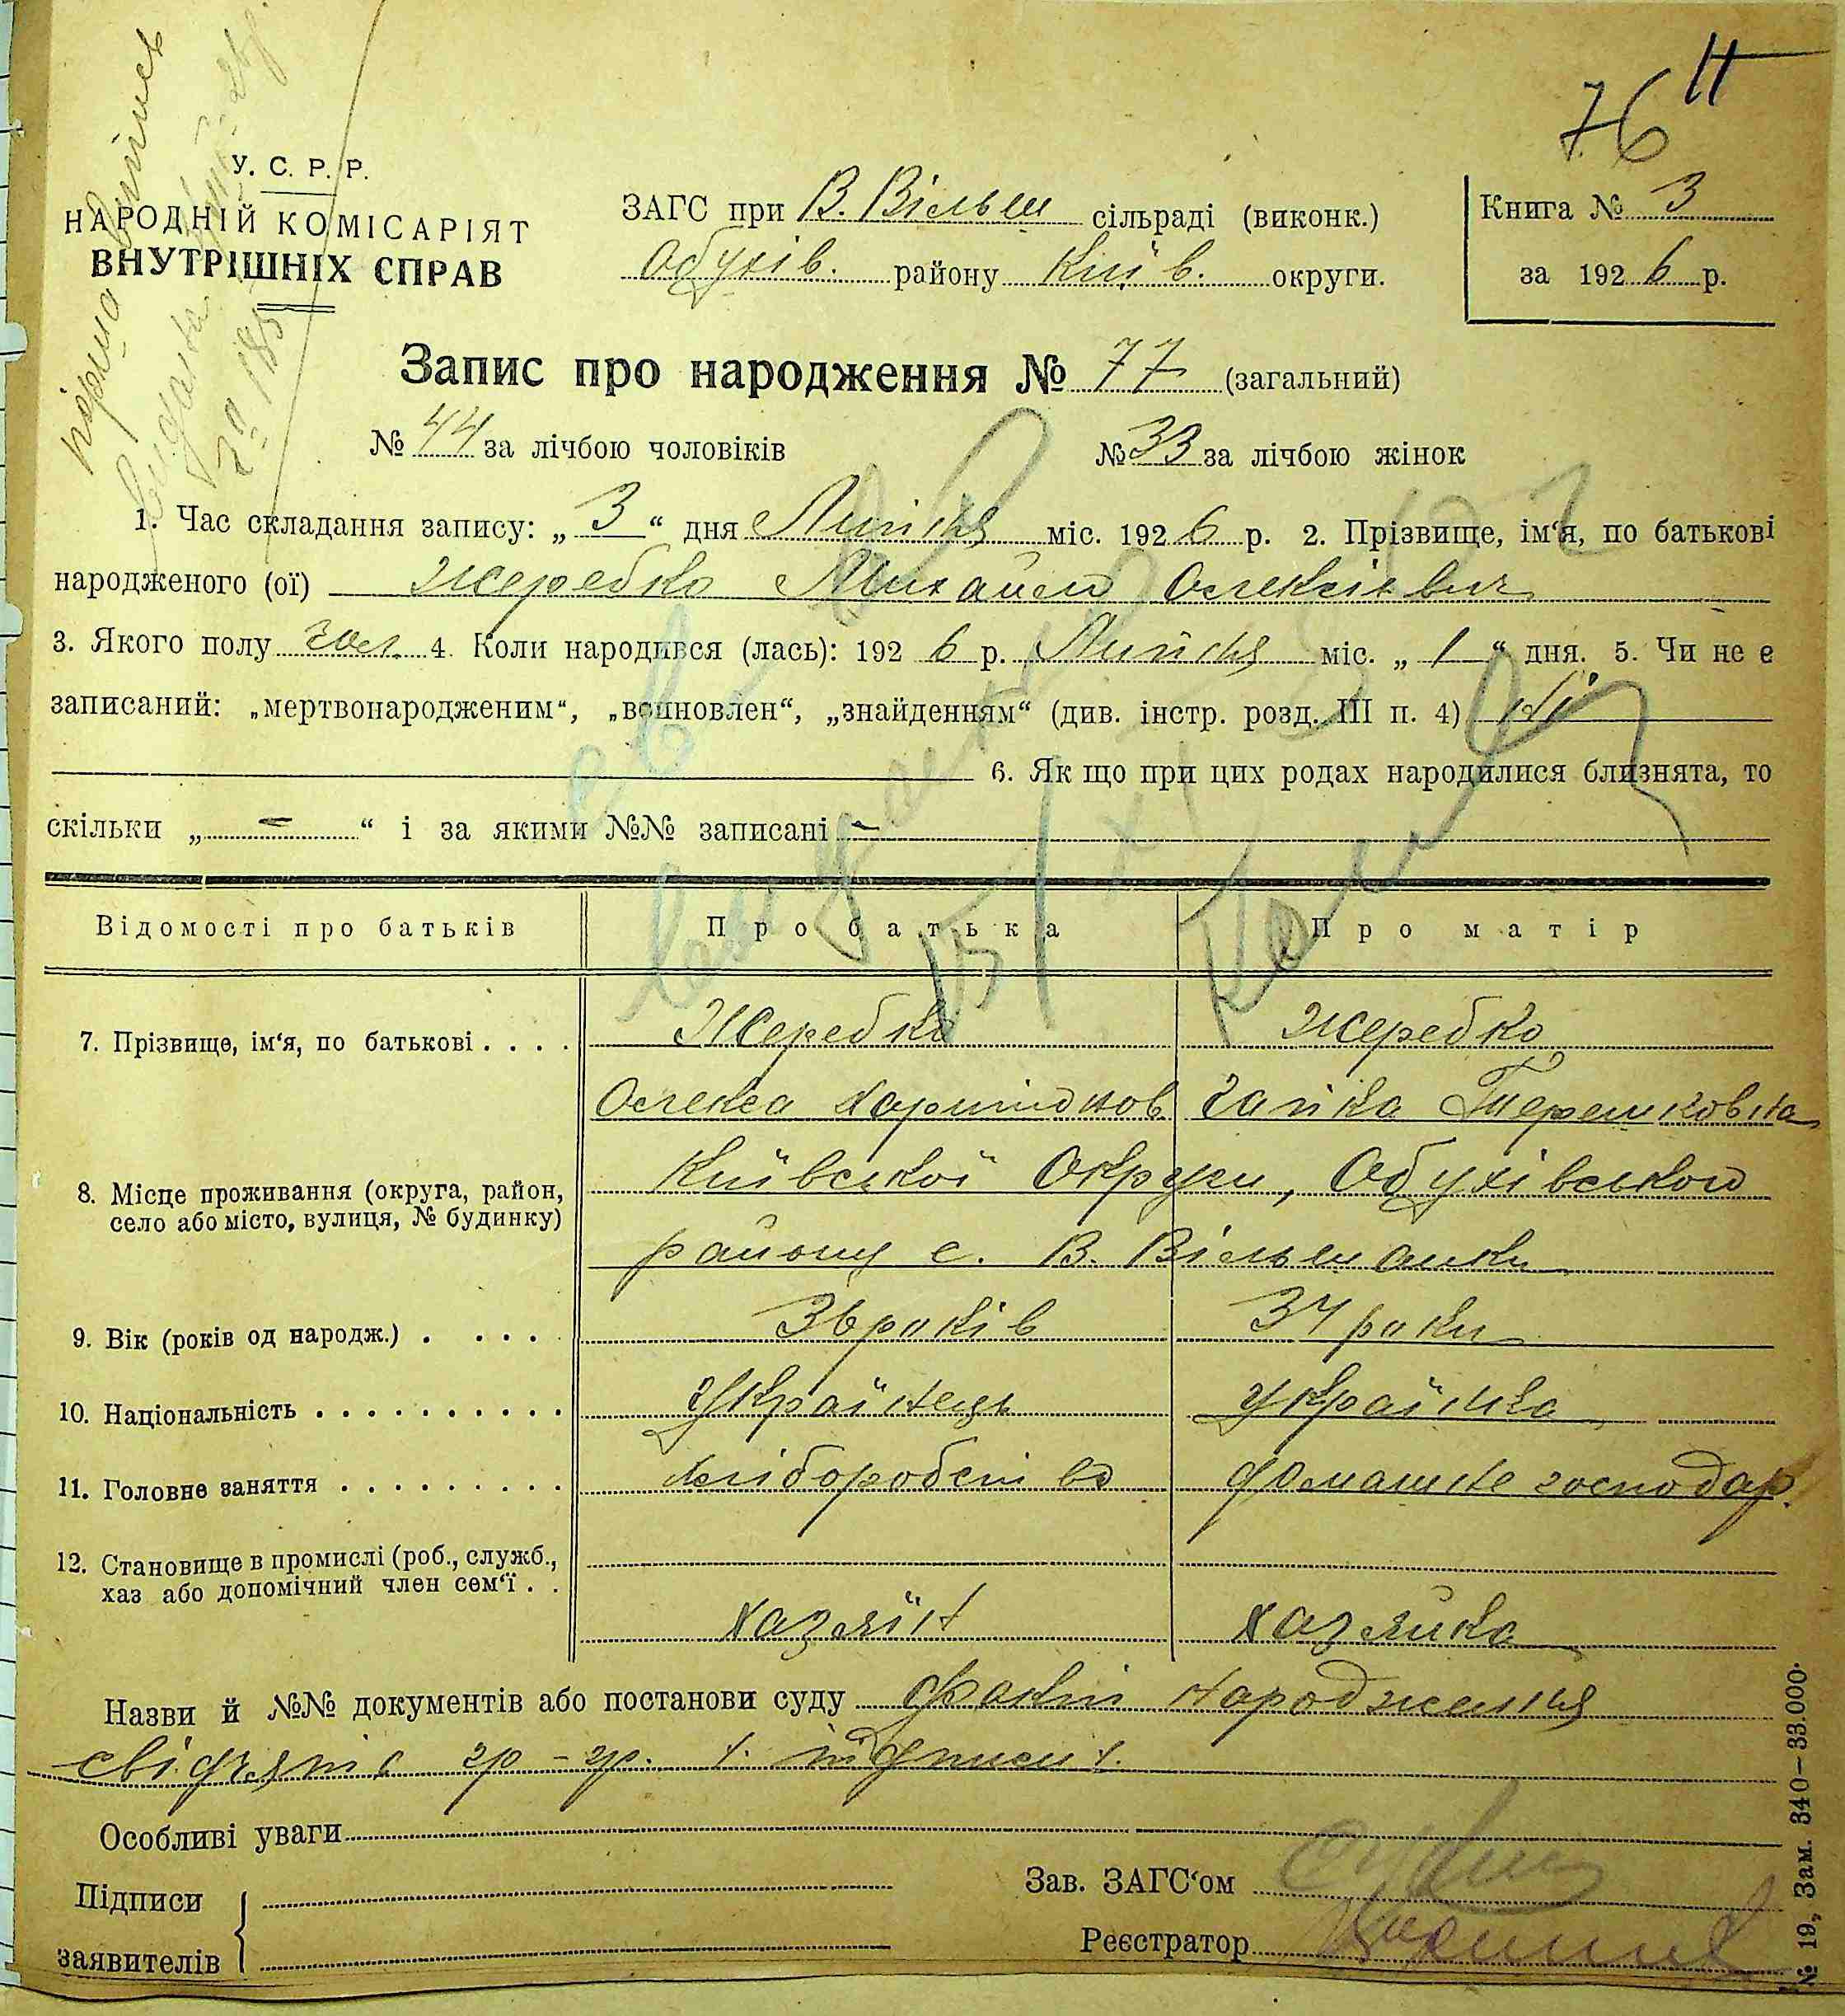 76
У. С. Р. Р.
НАРОДНІЙ КОМІСАРІЯТ
ВНУТРІШНІХ СПРАВ
ЗАГС при В. Вільш сільраді (виконк.)
Обухів. району Київ. округи.
Книга № 3
за 1926 р.
Запис про народження № 77 (загальний)
№ 44 за лічбою чоловіків № 33 за лічбою жінок
1. Час складання запису: „ 3 “ дня Липня міс. 1926 р. 2. Прізвище, ім‘я, по батькові
народженого (ої) Жеребко Михайло Олексієвич
3. Якого полу чол. 4. Коли народився (лась): 1926 р. Липня міс. „ 1 “ дня. 5. Чи не є
записаний: „мертвонародженим“, „всиновлен“, „знайденням“ (див. інстр. розд. III п. 4) Ні
6. Як що при цих родах народилися близнята, то
скільки „ – “ і за якими №№ записані –
Відомості про батьків Про батька Про матір
7. Прізвище, ім‘я, по батькові . . . . Жеребко Жеребко
Олекса Харитонов Гапка Терешковна
8. Місце проживання (округа, район, село або місто, вулиця, № будинку) Київської Округи, Обухівського
району с. В. Вільшанки
9. Вік (років од народж.) . . . . 36 років 34 роки
10. Національність . . . . . . . . . . Українець Українка
11. Головне заняття . . . . . . . . . . хліборобство домашнє господар.
12. Становище в промислі (роб., служб.,
хаз або допомічний член сем‘ї . . хазяїн хазяйка
Назви й №№ документів або постанови суду Факт народження
свідчять гр-гр.
Особливі уваги
Підписи
заявителів
Зав. ЗАГС‘ом
Реєстратор
№ 19, Зам. 340—33.000.